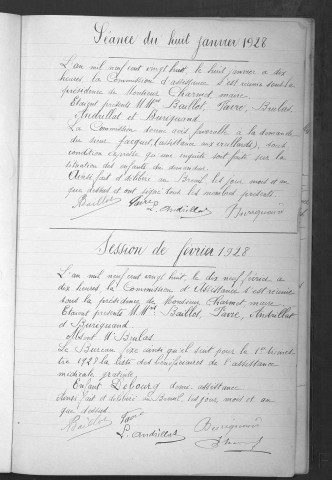 Séance du huit janvier 1928
L'an mil neuf cent vingt huit, le huit janvier a dix
heures, la Commission d'assistance s'est réunie sous la
présidence de Monsieur Charmot, maire.
Etaient présents M.M. Baillot, Favre, Bralas
Andrillat et Bureguand.
La Commission donne avis favorable à la demande
du sieur Jacquet (assistance aux vieillards), sous
condition expresse que une enquête soit faite sur la
situation des enfants du demandeur.
Ainsi fait et délibéré au Breuil les jour, mois et an
que dessus et ont signé tous les membres présents.
Baillot Favre
L. Andrillat Bureguand
Session de février 1928
L'an mil neuf cent vingt huit, le dix neuf février a
dix heures, la Commission d'Assistance s'est réunie
sous la présidence de Monsieur Charmot maire
Etaient présents M.M. Baillot, Favre, Andrillat
et Bureguand.
Absent M. Bralas
Le Bureau fixe ainsi qu'il suit pour le 1er
1928 la liste des bénéficiaires de l'assistance
médicale gratuite,
Enfant Debourg dans. assistance
Ainsi fait et délibéré. Le Breuil, les jour mois et an
que dessus.
Baillot Favre Bureguand
L. Andrillat